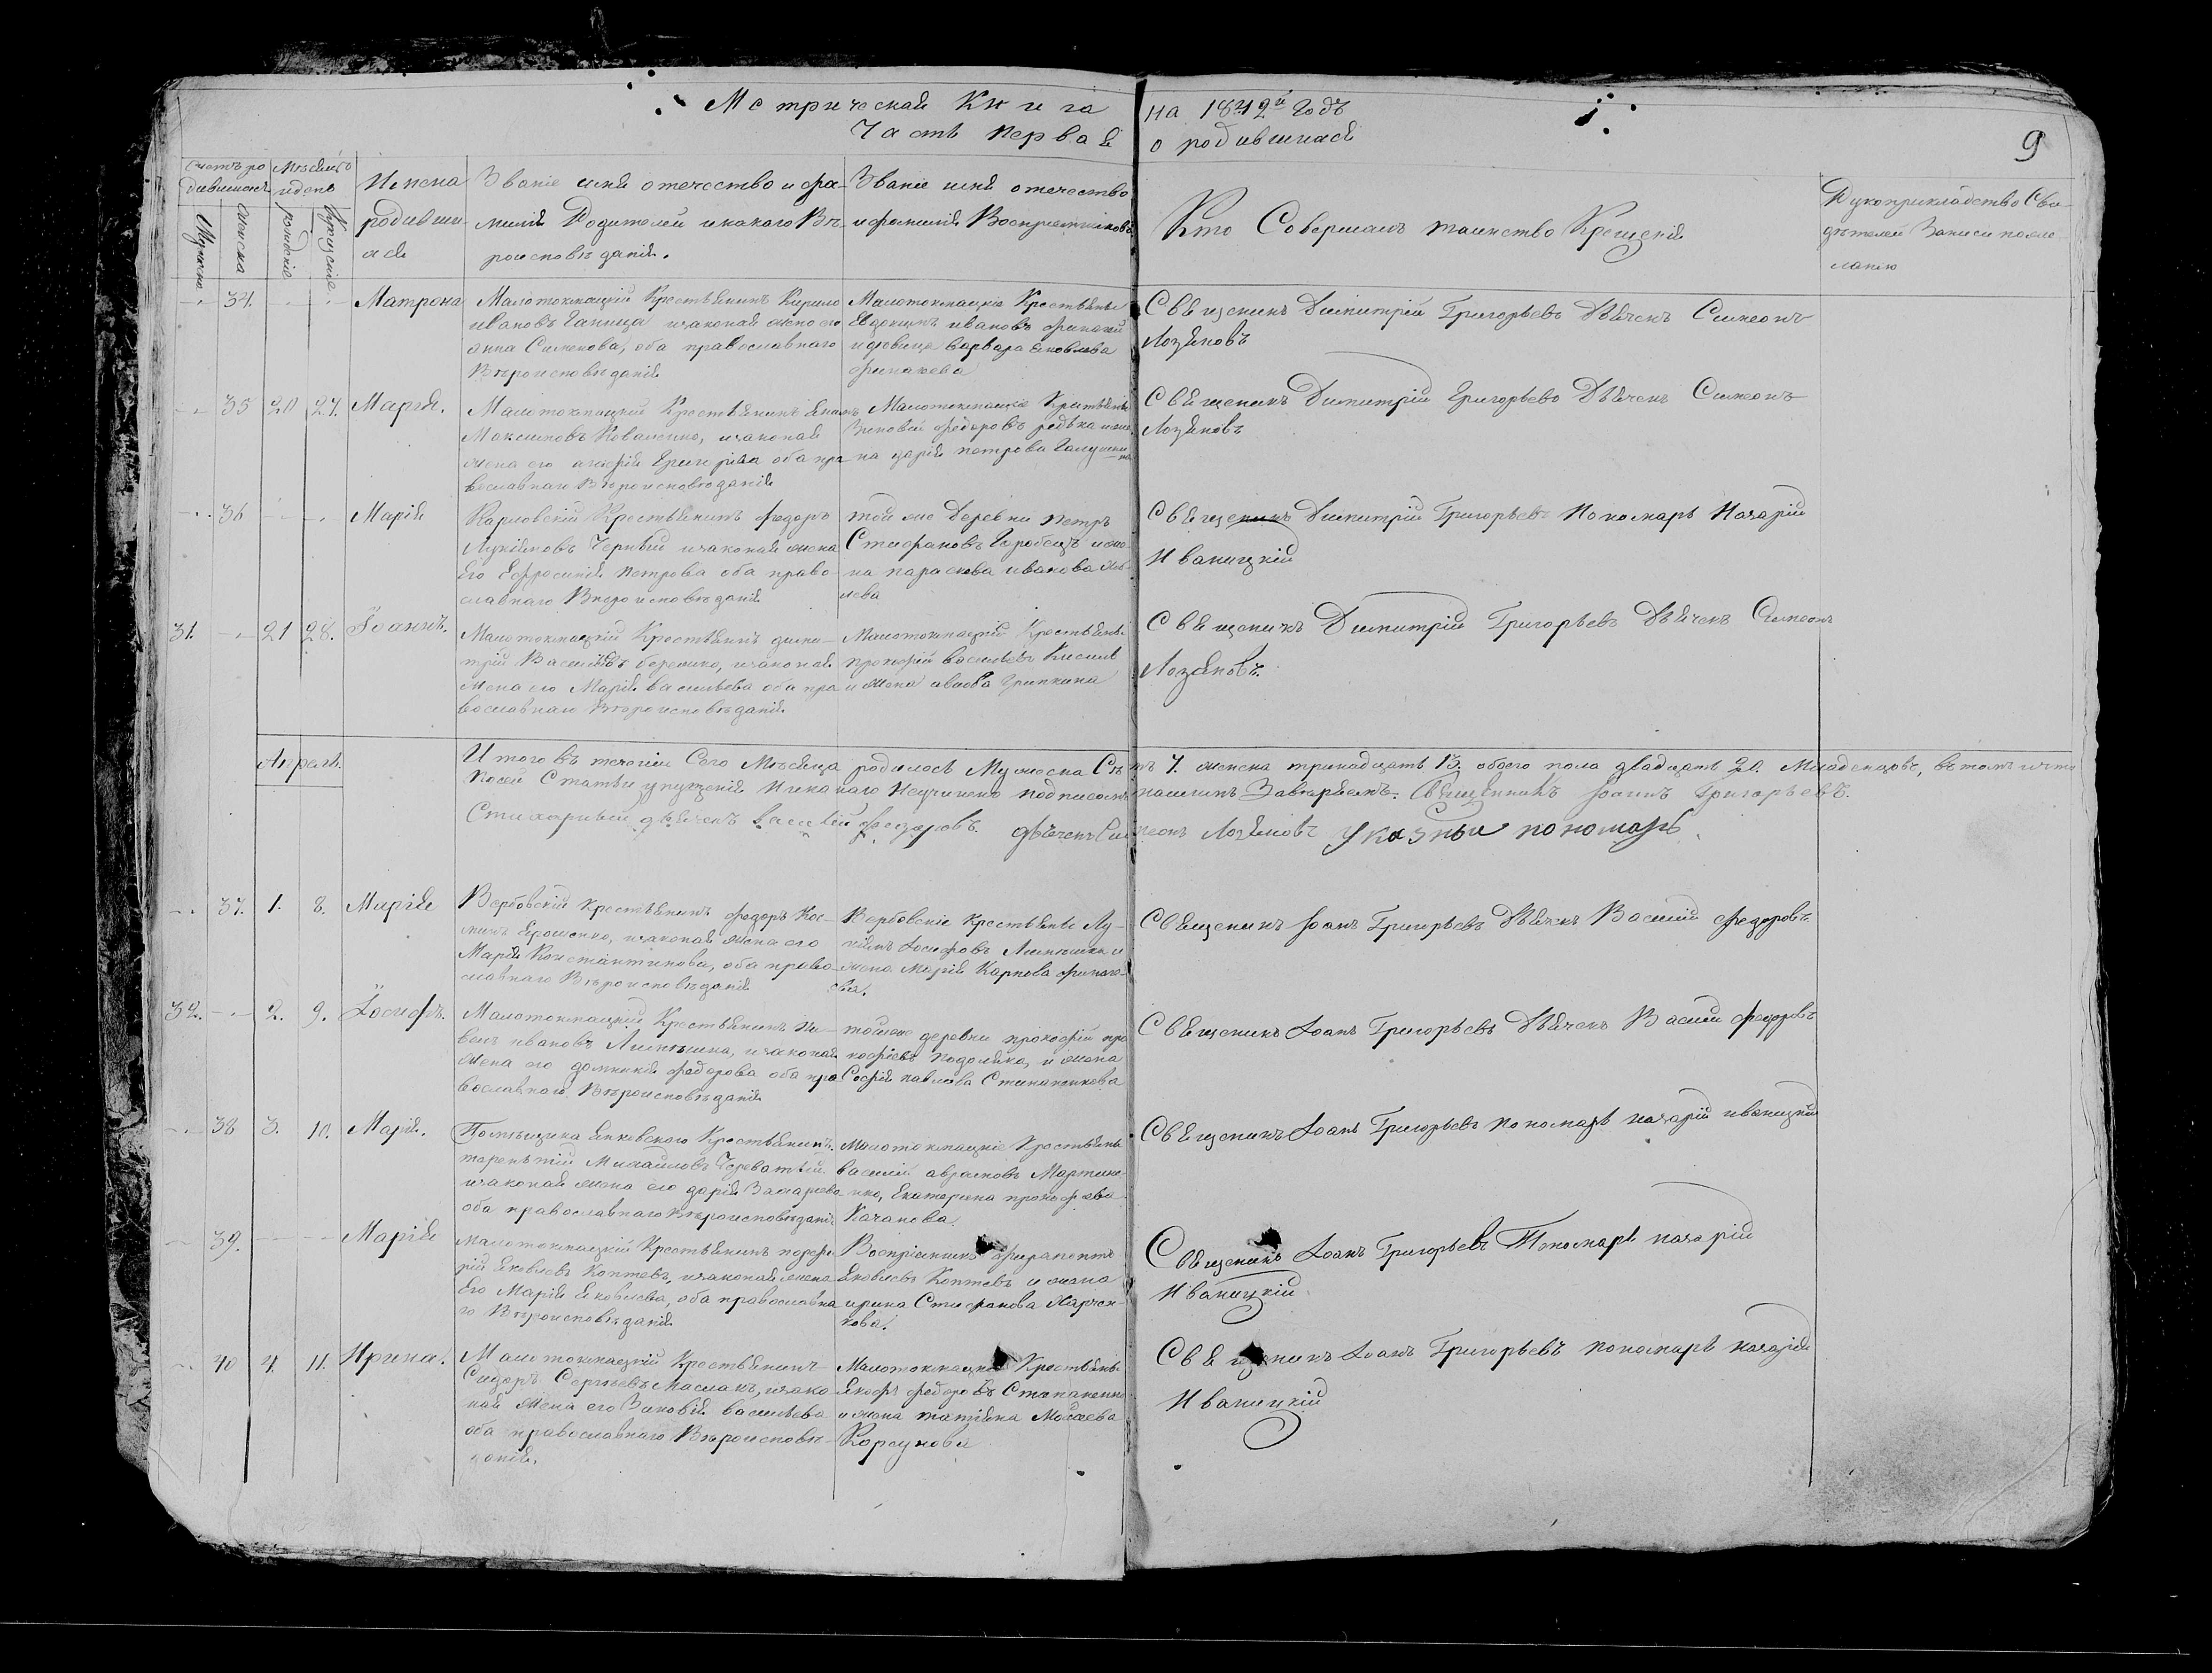 Метрическая Книга на 1842й Годъ
Часть Первая о родившихся
9
Счетъ ро Мѣсяцъ
дившихся и день
Мужеска
женска
рожденіе
Крещеніе
Имена
родивши
хся
Званіе имя отечество и фа-
милія Родителей и какаго Вѣ-
роисповѣданія.
Званіе имя отечество
и фамилія Воспріемниковъ
Кто Совершалъ таинство Крещенія
Рукоприкладство Сви-
дѣтелей Записи по же-
ланію
34. Матрона
Малотокмацкій Крестьянинъ Кирило
Ивановъ Ганница изаконая жена его
анна Сименова, оба православнаго
Вѣроисповѣданія
Малотокмацкіе Крестьяне
Евдокимъ ивановъ
и вдовица варвара яковлева
Священикъ Димитрій Григорьевъ Дьячекъ Симеонъ
Лозяновъ
35 20 27. Марія.
Малотокмацкій Крестьянинъ
Максимовъ Коваленко, изаконая
жена его агафія оба пра
вославнаго Вѣроисповѣданія
Малотокмацкіе Крестьяне
Зиновей федоровъ редька и же
на дарія петрова
Священикъ Димитрій Григорьевъ Дьячекъ Симеонъ
Лозяновъ
36 Марія
Карловскій Крестьянинъ федоръ
Лукіяновъ Черный изаконая жена
Его Ефросинія петрова оба право
славнаго Вѣроисповѣданія
той же Деревни петръ
Стифановъ Горобецъ и же
на параскева иванова
Священикъ Димитрій Григорьевъ Пономарь Назарій
Иваницкій
31. 21 28. Іоаннъ.
Малотокмацкій Крестьянинъ дими-
трій Васильевъ изаконая
жена его Марія васильева оба пра
вославнаго Вѣроисповѣданія.
Малотокмацкій Крестьяне
прокофій васильевъ Кисиль
и жена
Священикъ Димитрій Григорьевъ Дьячекъ Симеонъ
Лозяновъ.
Апрель.
Итого въ теченіи Сего Мѣсяца родилось Мужеска Семъ 7. женска тринадцать 13. обоего пола двадцать 20. Младенцовъ, въ томъ что
посей Статьи упущенія Никакаго Неучинено подписомъ нашимъ Завѣряемъ. Священникъ Іоаннъ Григорьевъ.
Стихарный дьячекъ василій федоровъ. дьячекъ Симеонъ Лозяновъ Указные пономарь
37. 1. 8. Марія
Вербовскій крестьянинъ федоръ Кос-
минъ Ярошенко, изаконая жена его
Марія Константинова, оба право-
славнаго Вѣроисповѣданія
Вербовскіе крестьяне Лу-
кіянъ Іосифовъ и
жена Марія Карпова
Священикъ Іоанъ Григорьевъ Дьячекъ Василій федоровъ
32. 2. 9. Іосифъ.
Малотокмацкій Крестьянинъ Па-
велъ ивановъ изаконая
жена его домникія федорова оба пра
вославнаго Вѣроисповѣданія
тойже деревни прокофій про
кофіевъ подоляко, и жена
Софія павлова Степаненкова
Священикъ Іоанъ Григорьевъ Дьячекъ Василій федоровъ
38 3. 10. Марія.
Помѣщика Янковскаго Крестьянинъ
терентій Михайловъ Череватый
изаконая жена его дарія Захарьева
оба православнаго Вѣроисповѣданія
Малотокмацкіе Крестьяне
василій аврамовъ Мартине-
нко, Екатерина прокофіева
Качанова.
Священикъ Іоанъ Григорьевъ пономарь назарій иваницкій
39. Марія
Малотокмацкій Крестьянинъ порфи
рій яковлевъ Коптевъ, изаконая жена
Его Марія яковлева, оба православна
го Вѣроисповѣданія
Воспріемники ферапонтъ
яковлевъ Коптевъ и жена
ирина Стифанова Харчен-
кова.
Священикъ Іоанъ Григорьевъ Пономарь назарій
Иваницкій
40 4. 11. Ирина.
Малотокмацкій Крестьянинъ
Сидоръ Сергѣевъ Маслакъ, изако
ная жена его Зиновія васильева
оба православнаго Вѣроисповѣ-
данія.
Малотокмацкіе Крестьяне
яковъ федоровъ Степаненко
и жена татіяна Мойсеева
Корсунова
Священикъ Іоанъ Григорьевъ пономарь назарій
Иваницкій